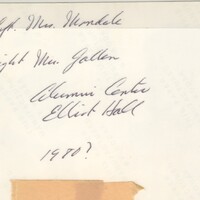 Mrs. Mondale
Mrs. Gallen
Alumni Center
Elliot Hall
1970?